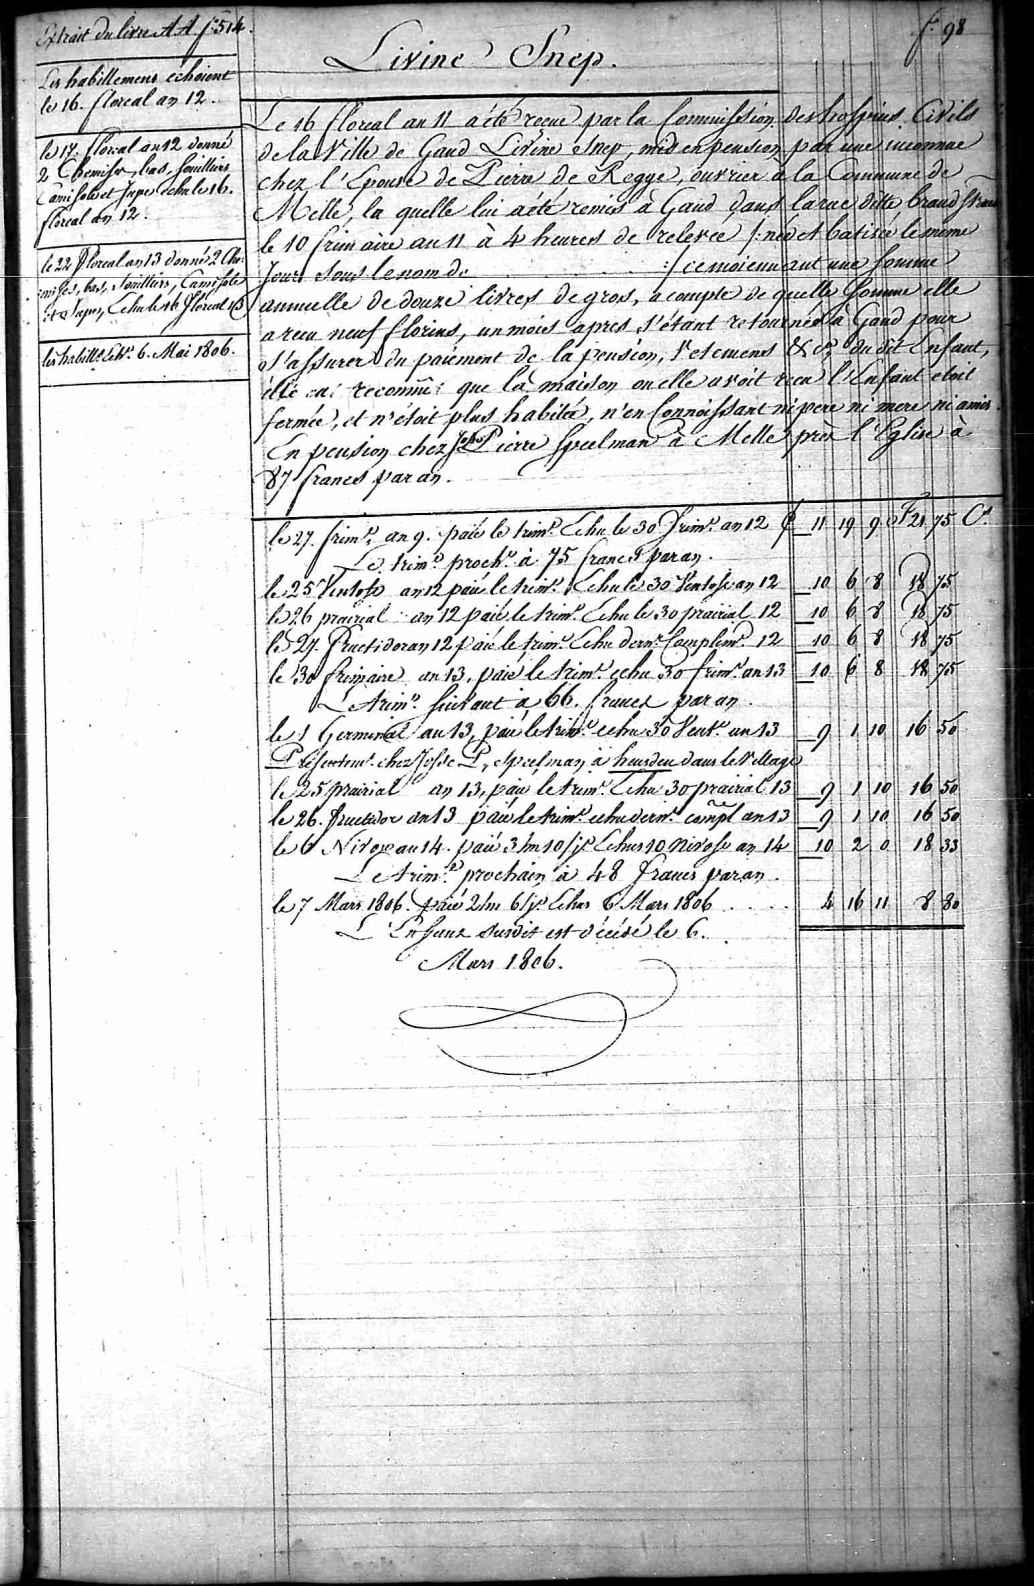 f. 98
Extrait du livre AA f: 514.
Les habillemens échoient
le 16. floreal an 12.
le 17. floreal an 12 donné
2 Chemises, bas, Souilliers
Camisole et Jupe echu le 16.
floreal an 12.
le 22 floreal an 13 donné 2 Che-
mises, bas, Souilliers, Camisole
et Jupe, Echu le 16 floreal 13
les habillts 6. Mai 1806.
Livine Snep.
Le 16 floreal an 11 a été recue par la Commission des hospices Civils
de la Ville de Gand Livine Snep, mis en pension par une inconnue
chez l'Epouse de Pierre de Regge, ouvrier à la Commune de
Melle, la quelle lui a été remise à Gand dans la rue ditte
le 10 frimaire an 11 à 4 heures de relevée /: née et batisée le meme
Jour sous le nom de :/ cemoienant une somme
annuelle de douze livres de gros, a compte de quelle somme elle
a recu neuf florins, un mois apres, s'étant retournée à Gand pour
s'assurer du paiément de la pension, Vetemens &c. du dit Enfant,
elle a reconnu que la maison ou elle avoit recu l'Enfant etoit
fermée, et n'étoit plus habitée, n'en Connoissant ni pere ni mere ni amis.
En pension chez Josse Pierre Speelman à Melle près l'Eglise à
87 francs par an.
le 27. frimre. an 9. païé le trimre. Echu le 30 frimre. an 12 11 19 9 F 21 75 Cs.
Le trimre. prochn. à 75 francs par an.
le 25 Ventose an 12 païé le trimre. Echu le 30 Ventose an 12 10 6 8 18 75
le 26 prairial an 12 païé le trimre. Echu le 30 prairial 12 10 6 8 18 75
le 27. fructidor an 12 païé le trimre. Echu dern. Complemre. 12 10 6 8 18 75
le 30 frimaire an 13, païé le trimre. echu 30 frimre. an 13 10 6 8 18 75
Le trimre. suivant à 66. francs par an.
le 1 Germinal an 13, païé le trimre. echu 30 Vente. an 13 9 1 10 16 50
Présentemt. chez Josse P. Speelman à heusden dans le Village
le 25 prairial an 13, païé le trimre. Echu 30 prairial 13 9 1 10 16 50
le 26. fructidor an 13 païé le trimre. echu dern. compl an 13 9 1 10 16 50
le 6 Nivose an 14. païé 3/m 10/js Echus 10 nivose an 14 10 2 0 18 33
Le trimre. prochain à 48 francs par an.
le 7 Mars 1806. païé 2/m 6/js Echus 6 Mars 1806 . . . . 4 16 11 8 80
L'Enfant susdit est décédé le 6.
Mars 1806.